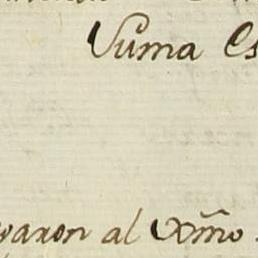 Suma Es
garon al Exmo